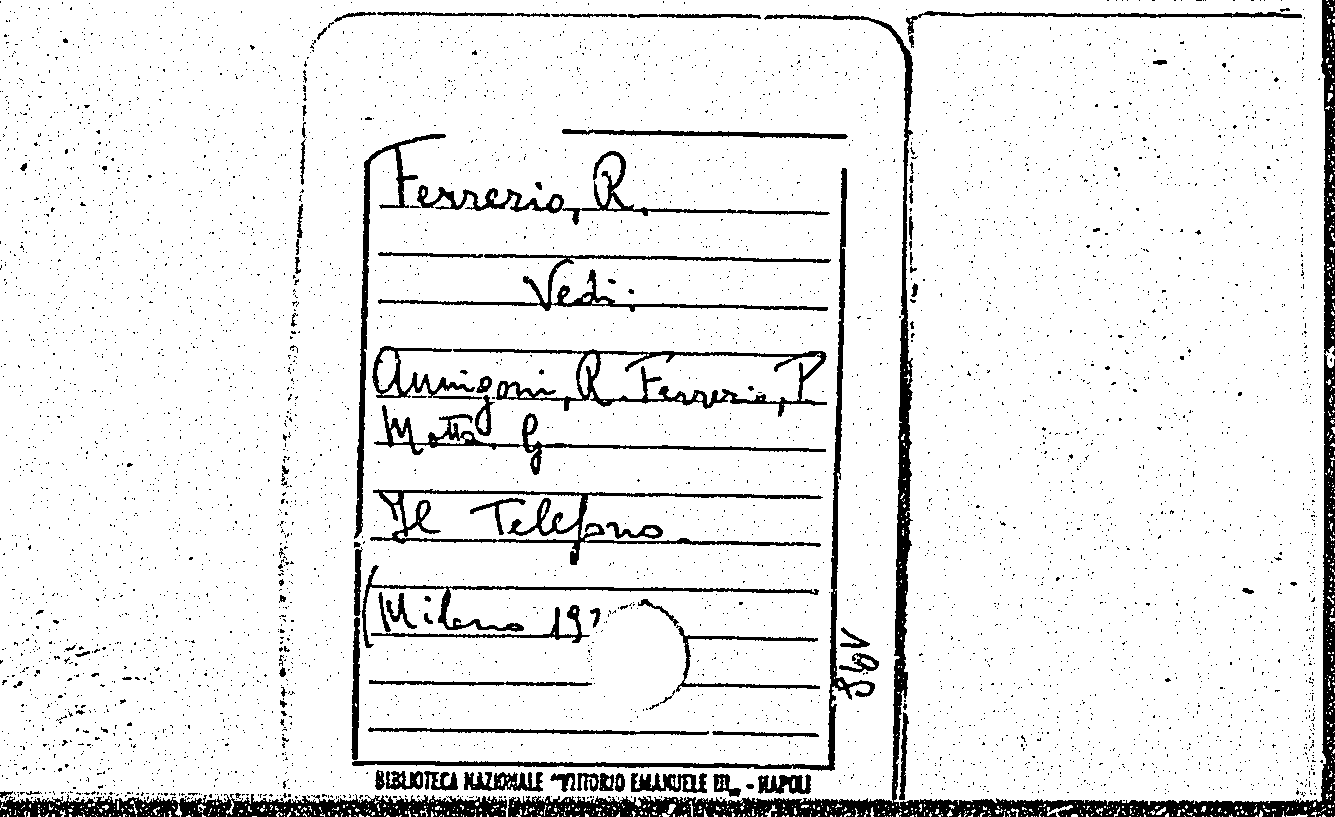 Ferrerio, R.
Vedi:
Annigoni, R. Ferrerio, P
Motta. G
Il Telefono.
(Milano 193
BIBLIOTECA NAZIONALE "VITTORIO EMANUELE III„ - NAPOLI